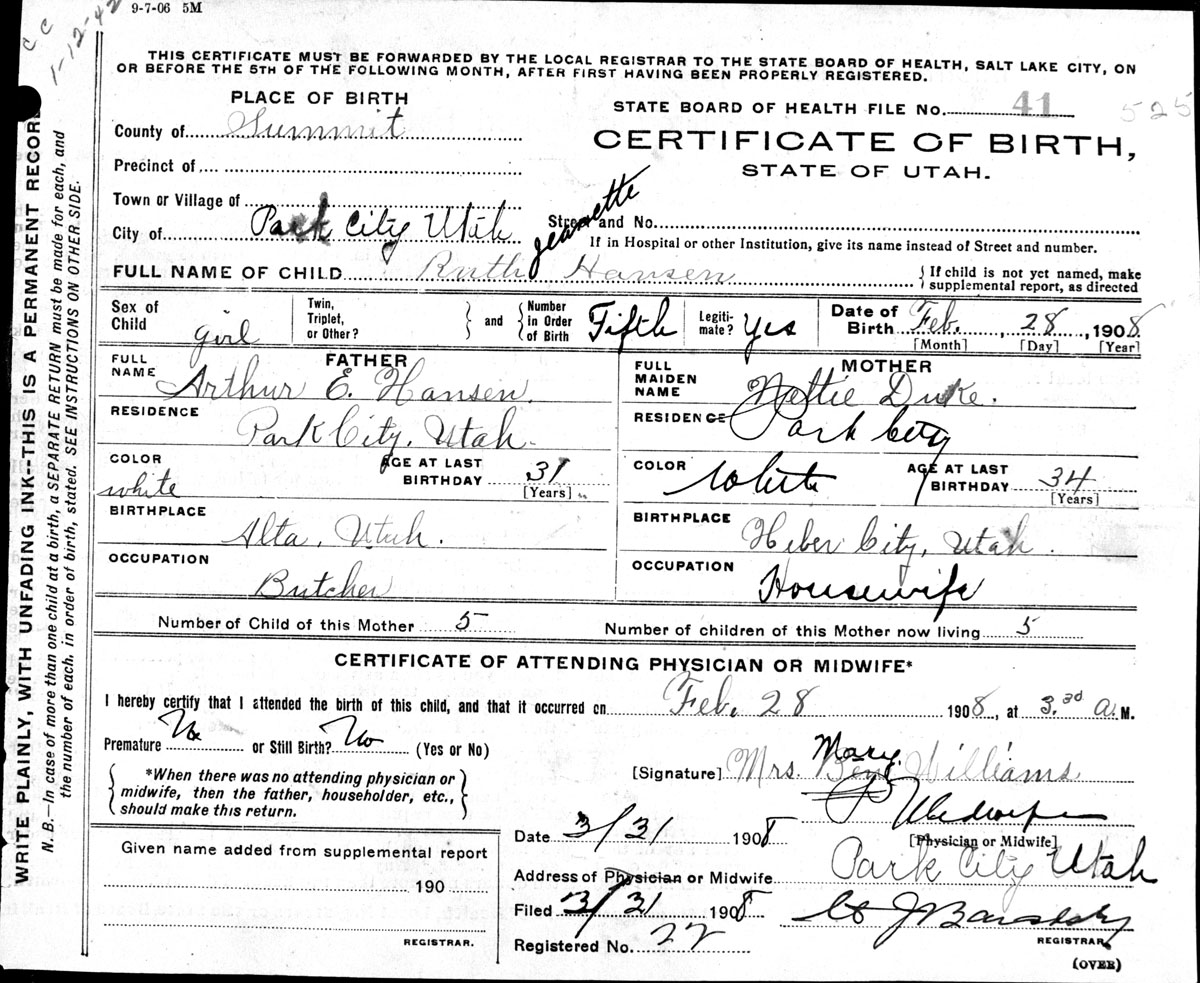 9-7-06 5M
C C
1-12-42
THIS CERTIFICATE MUST BE FORWARDED BY THE LOCAL REGISTRAR TO THE STATE BOARD OF HEALTH, SALT LAKE CITY, ON
OR BEFORE THE 5TH OF THE FOLLOWING MONTH, AFTER FIRST HAVING BEEN PROPERLY REGISTERED.
PLACE OF BIRTH
STATE BOARD OF HEALTH FILE No. 41 525
County of Summit
CERTIFICATE OF BIRTH,
STATE OF UTAH.
Precinct of
Town or Village of
City of Park City Utah Street and No.
If in Hospital or other Institution, give its name instead of Street and number.
Jeanette
FULL NAME OF CHILD Ruth Hansen { If child is not yet named, make
supplemental report, as directed
Sex of Child girl Twin, Triplet, or Other? } and { Number in Order of Birth Fifth Legiti-mate? Yes Date of Birth Feb. , 28 , 1908
[Month] [Day] [Year]
FATHER
FULL NAME Arthur E. Hansen.
RESIDENCE
Park City, Utah.
COLOR white AGE AT LAST BIRTHDAY 31
[Years]
BIRTHPLACE
Alta, Utah.
OCCUPATION
Butcher
MOTHER
FULL MAIDEN NAME Nettie Duke.
RESIDENCE Park City
COLOR White AGE AT LAST BIRTHDAY 34
[Years]
BIRTHPLACE
Heber City, Utah.
OCCUPATION
Housewife
Number of Child of this Mother 5 Number of children of this Mother now living 5
CERTIFICATE OF ATTENDING PHYSICIAN OR MIDWIFE*
I hereby certify that I attended the birth of this child, and that it occurred on Feb. 28 1908, at 3.30 a. M.
Premature No or Still Birth? No (Yes or No)
{ *When there was no attending physician or
midwife, then the father, householder, etc.,
should make this return. }
Mary
[Signature] Mrs. Williams
Midwife
[Physician or Midwife]
Date 3/31 1908
Address of Physician or Midwife Park City Utah
Filed 3/31 1908
REGISTRAR.
Registered No. 22
(OVER)
Given name added from supplemental report
190
REGISTRAR.
WRITE PLAINLY, WITH UNFADING INK--THIS IS A PERMANENT RECORD
N. B.—In case of more than one child at a birth, a SEPARATE RETURN must be made for each, and
the number of each, in order of birth, stated. SEE INSTRUCTIONS ON OTHER SIDE.